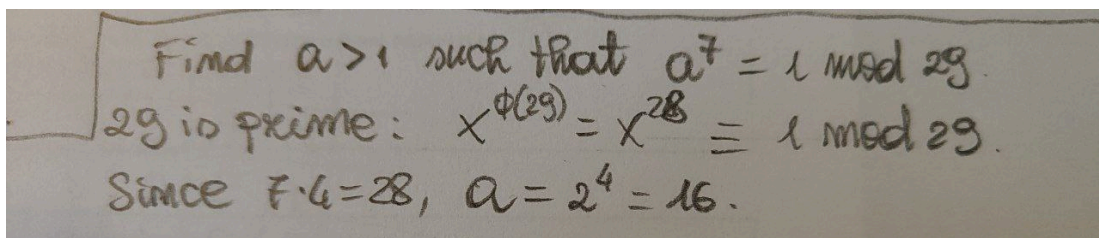 Find a > 1 such that a⁷ = 1 mod 29.
29 is prime: x^φ(29) = x²⁸ ≡ 1 mod 29.
Since 7·4=28, a = 2⁴ = 16.